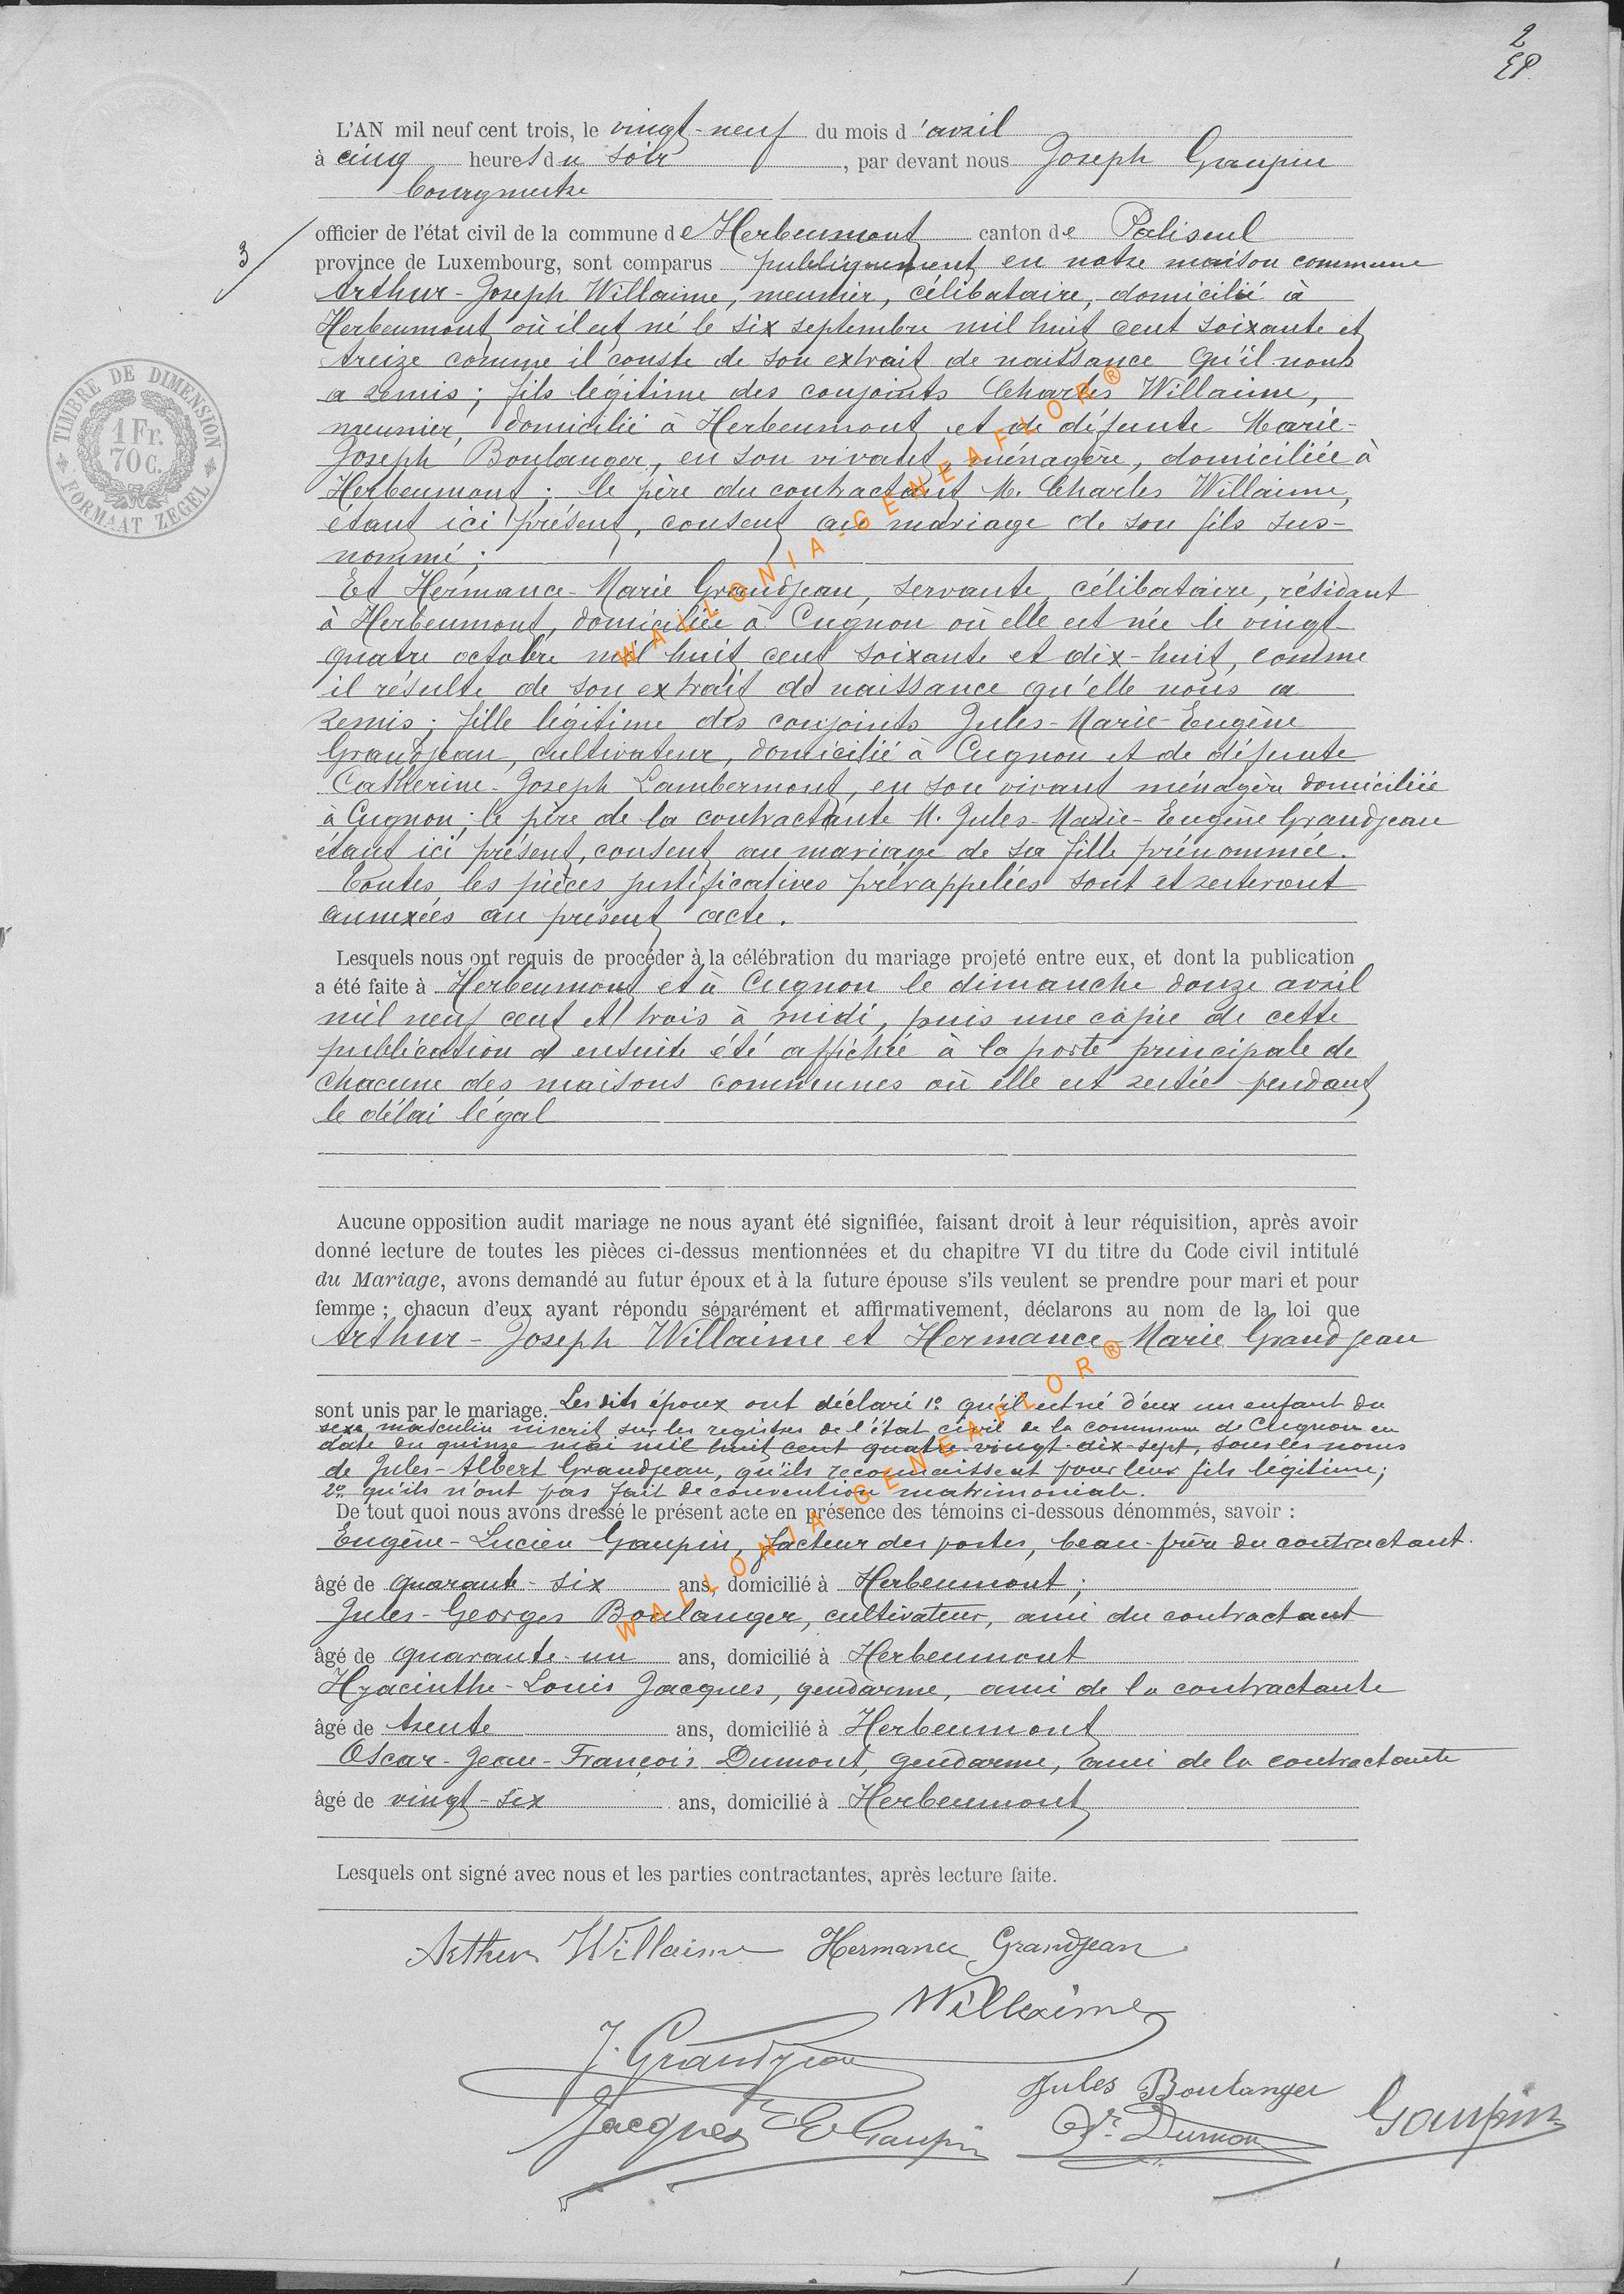 2
EP.
L'AN mil neuf cent trois, le vingt-neuf du mois d'avril
à cinq heures du soir, par devant nous Joseph Gaupin
bourgmestre
3
officier de l'état civil de la commune de Herbeumont canton de Paliseul
province de Luxembourg, sont comparus publiquement en notre maison commune
Arthur-Joseph Willaime, meunier, célibataire, domicilié à
Herbeumont où il est né le six septembre mil huit cent soixante et
treize comme il conste de son extrait de naissance qu'il nous
a remis; fils légitime des conjoints Charles Willaime,
meunier, domicilié à Herbeumont et de défunte Marie-
Joseph Boulanger, en son vivant, ménagère, domiciliée à
Herbeumont; le père du contractant M. Charles Willaime,
étant ici présent, consent au mariage de son fils sus-
nommé;
Et Hermance-Marie Grandjean, servante, célibataire, résidant
à Herbeumont, domiciliée à Cugnon où elle est née le vingt-
quatre octobre mil huit cent soixante et dix-huit, comme
il résulte de son extrait de naissance qu'elle nous a
remis; fille légitime des conjoints Jules-Marie-Eugène
Grandjean, cultivateur, domicilié à Cugnon et de défunte
Catherine-Joseph Lambermont, en son vivant ménagère domiciliée
à Cugnon; le père de la contractante M. Jules-Marie-Eugène Grandjean
étant ici présent, consent au mariage de sa fille prénommée.
Toutes les pièces justificatives prérappelées sont et resteront
annexées au présent acte.
Lesquels nous ont requis de procéder à la célébration du mariage projeté entre eux, et dont la publication
a été faite à Herbeumont et à Cugnon le dimanche douze avril
mil neuf cent et trois à midi, puis une copie de cette
publication a ensuite été affiché à la porte principale de
chacune des maisons communes où elle est restée pendant
le délai légal
Aucune opposition audit mariage ne nous ayant été signifiée, faisant droit à leur réquisition, après avoir
donné lecture de toutes les pièces ci-dessus mentionnées et du chapitre VI du titre du Code civil intitulé
du Mariage, avons demandé au futur époux et à la future épouse s'ils veulent se prendre pour mari et pour
femme; chacun d'eux ayant répondu séparément et affirmativement, déclarons au nom de la loi que
Arthur-Joseph Willaime et Hermance-Marie Grandjean
sont unis par le mariage. Les dits époux ont déclaré 1° qu'il est né d'eux un enfant du
sexe masculin inscrit sur les registres de l'état civil de la commune de Cugnon en
date du quinze mai mil huit cent quatre-vingt-dix-sept, sous les noms
de Jules-Albert Grandjean, qu'ils reconnaissent pour leur fils légitime;
2° qu'ils n'ont pas fait de convention matrimoniale.
De tout quoi nous avons dressé le présent acte en présence des témoins ci-dessous dénommés, savoir :
Eugène-Lucien Gaupin, facteur des postes, beau-frère du contractant.
âgé de quarante-six ans, domicilié à Herbeumont;
Jules-Georges Boulanger, cultivateur, ami du contractant
âgé de quarante-un ans, domicilié à Herbeumont
Hyacinthe-Louis Jacques, gendarme, ami de la contractante
âgé de trente ans, domicilié à Herbeumont
Oscar-Jean-François Dumont, gendarme, ami de la contractante
âgé de vingt-six ans, domicilié à Herbeumont
Lesquels ont signé avec nous et les parties contractantes, après lecture faite.
Arthur Willaime Hermance Grandjean
Willaime
J. Grandjean
Jules Boulanger
Jacques E Gaupin Dumont Gaupin
TIMBRE DE DIMENSION
1 Fr.
70 C.
FORMAAT ZEGEL
WALLONIA-GENEAFLOR®
WALLONIA-GENEAFLOR®